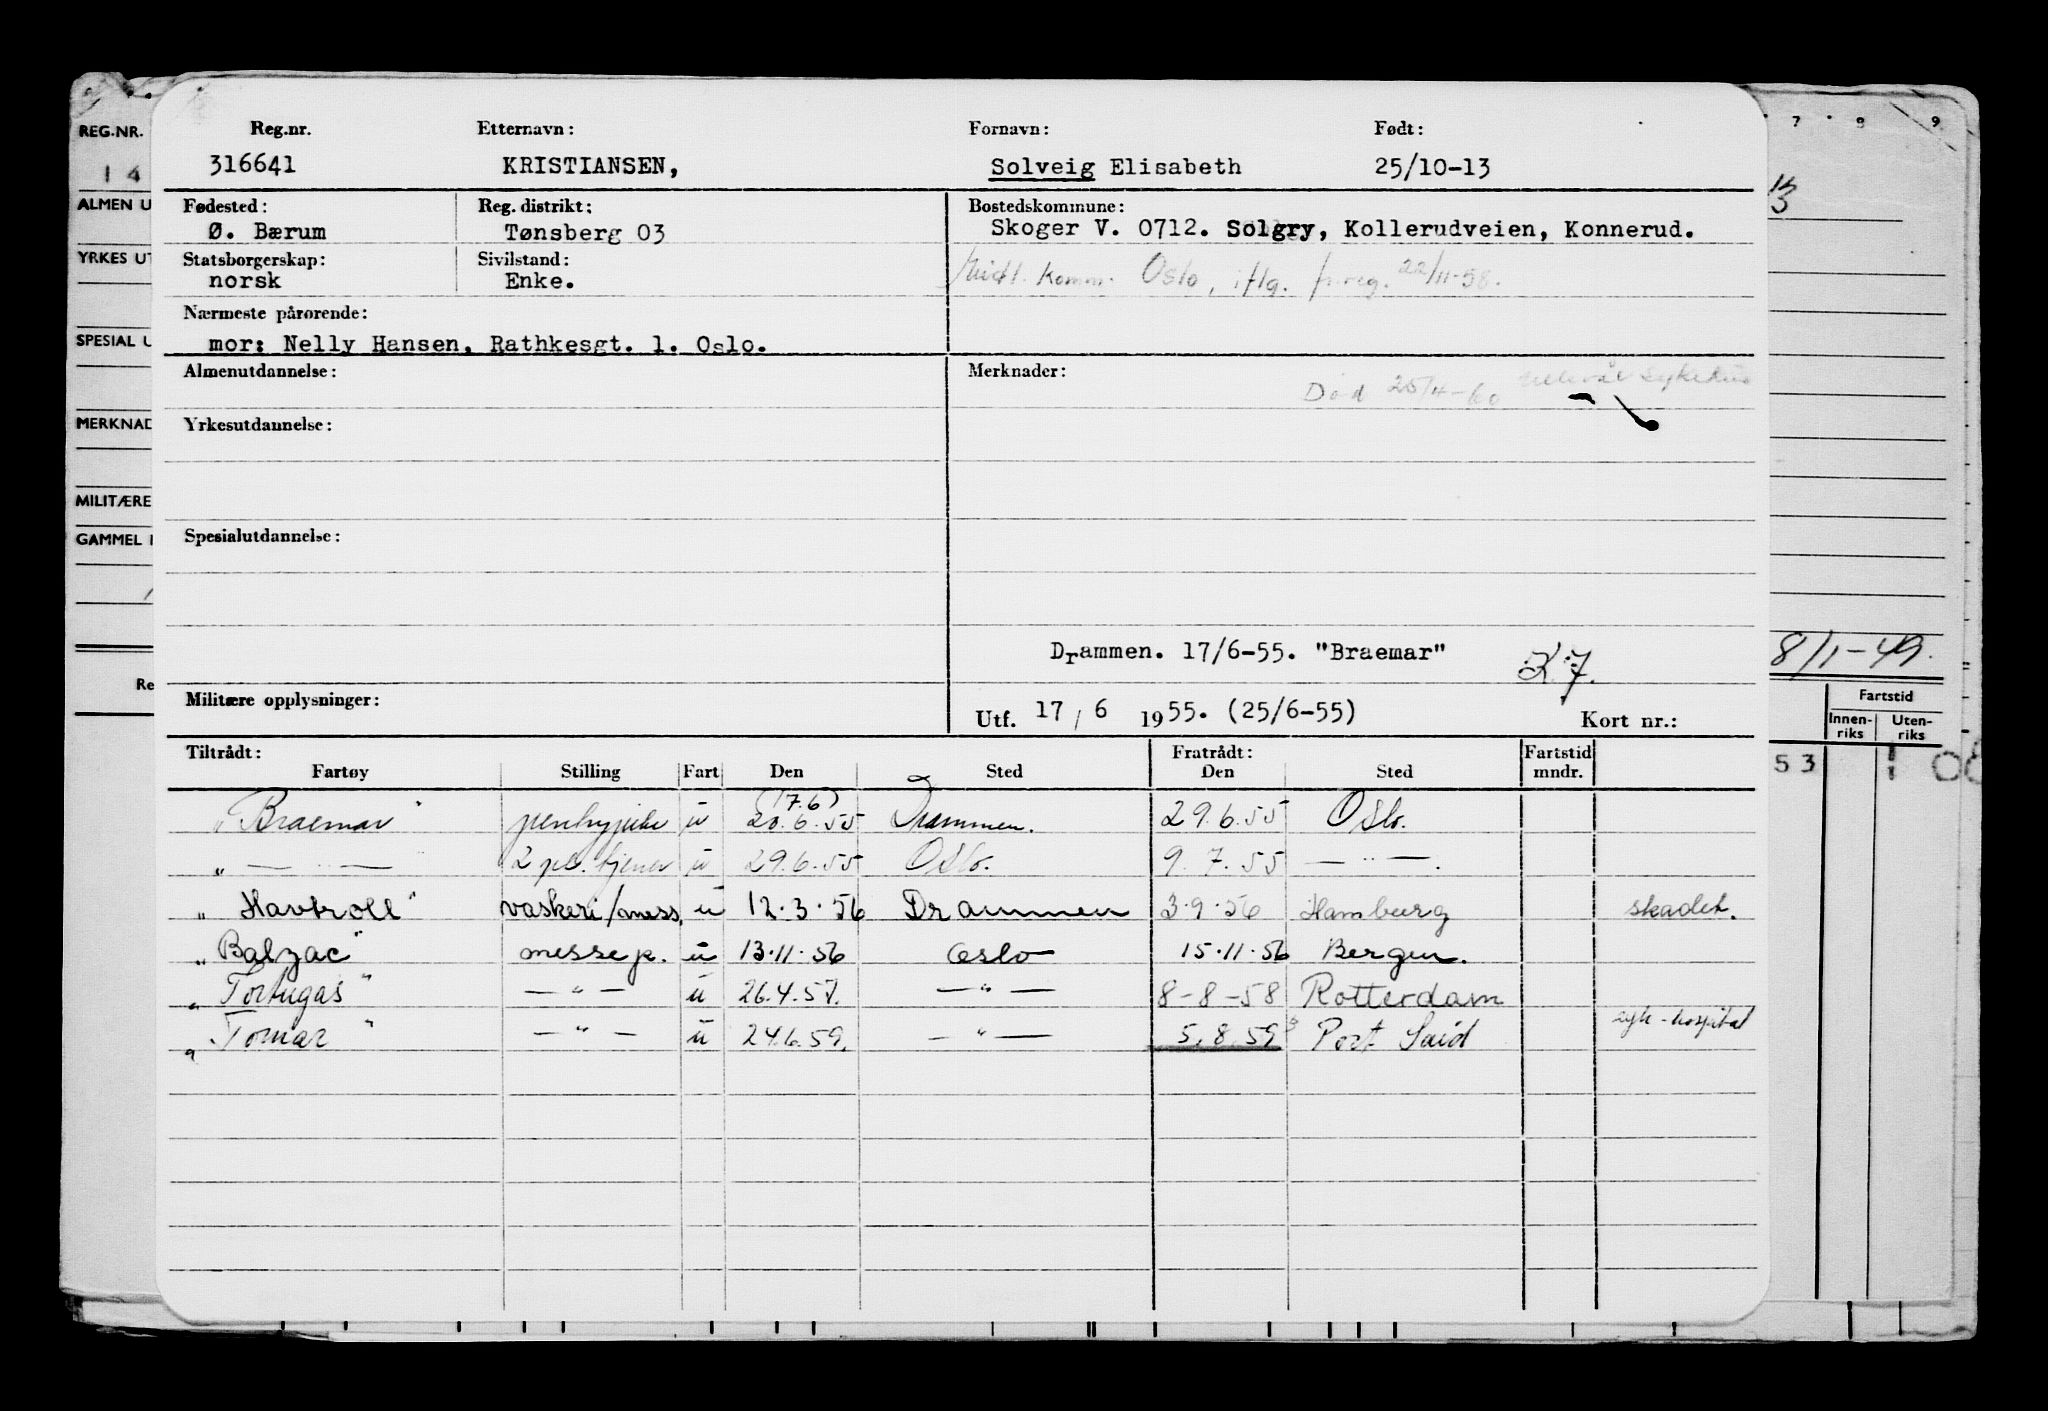 Reg.nr. Etternavn: Fornavn: Født:
316641 KRISTIANSEN, Solveig Elisabeth 25/10-13
Fødested: Reg. distrikt: Bostedskommune:
Ø. Bærum Tønsberg 03 Skoger V. 0712. Solgry, Kollerudveien, Konnerud.
Statsborgerskap: Sivilstand:
norsk Enke.
Midl. komm. Oslo, iflg. fr.reg. 22/11-58.
Nærmeste pårørende:
mor: Nelly Hansen, Rathkesgt. 1. Oslo.
Almenutdannelse: Merknader:
Død 25/4-60 Ullevål sykehus
Yrkesutdannelse:
Spesialutdannelse:
Drammen. 17/6-55. "Braemar"
Militære opplysninger: Utf. 17/6 1955. (25/6-55) Kort nr.:
Tiltrådt: Fratrådt: Fartstid
Fartøy Stilling Fart Den Sted Den Sted mndr.
(17.6)
"Braemar" pentrypike u 20.6.55 Drammen. 29.6.55 Oslo.
" — " — 2 pl. tjener u 29.6.55 Oslo. 9.7.55 — " —.
"Havtroll" vaskeri/mess. u 12.3.56 Drammen 3.9.56 Hamburg skadet.
"Balzac" messep. u 13.11.56 Oslo 15.11.56 Bergen.
"Tortugas" — " — u 26.4.57. — " — 8-8-58 Rotterdam
"Tomar" — " — u 24.6.59. — " — 5.8.59 Port Said syk-hospital
REG.NR.
14
ALMEN U
YRKES UT
SPESIAL U
MERKNAD
MILITÆRE
GAMMEL
Re
7 8 9
13
8/1-49.
Fartstid
Innen-riks Uten-riks
53